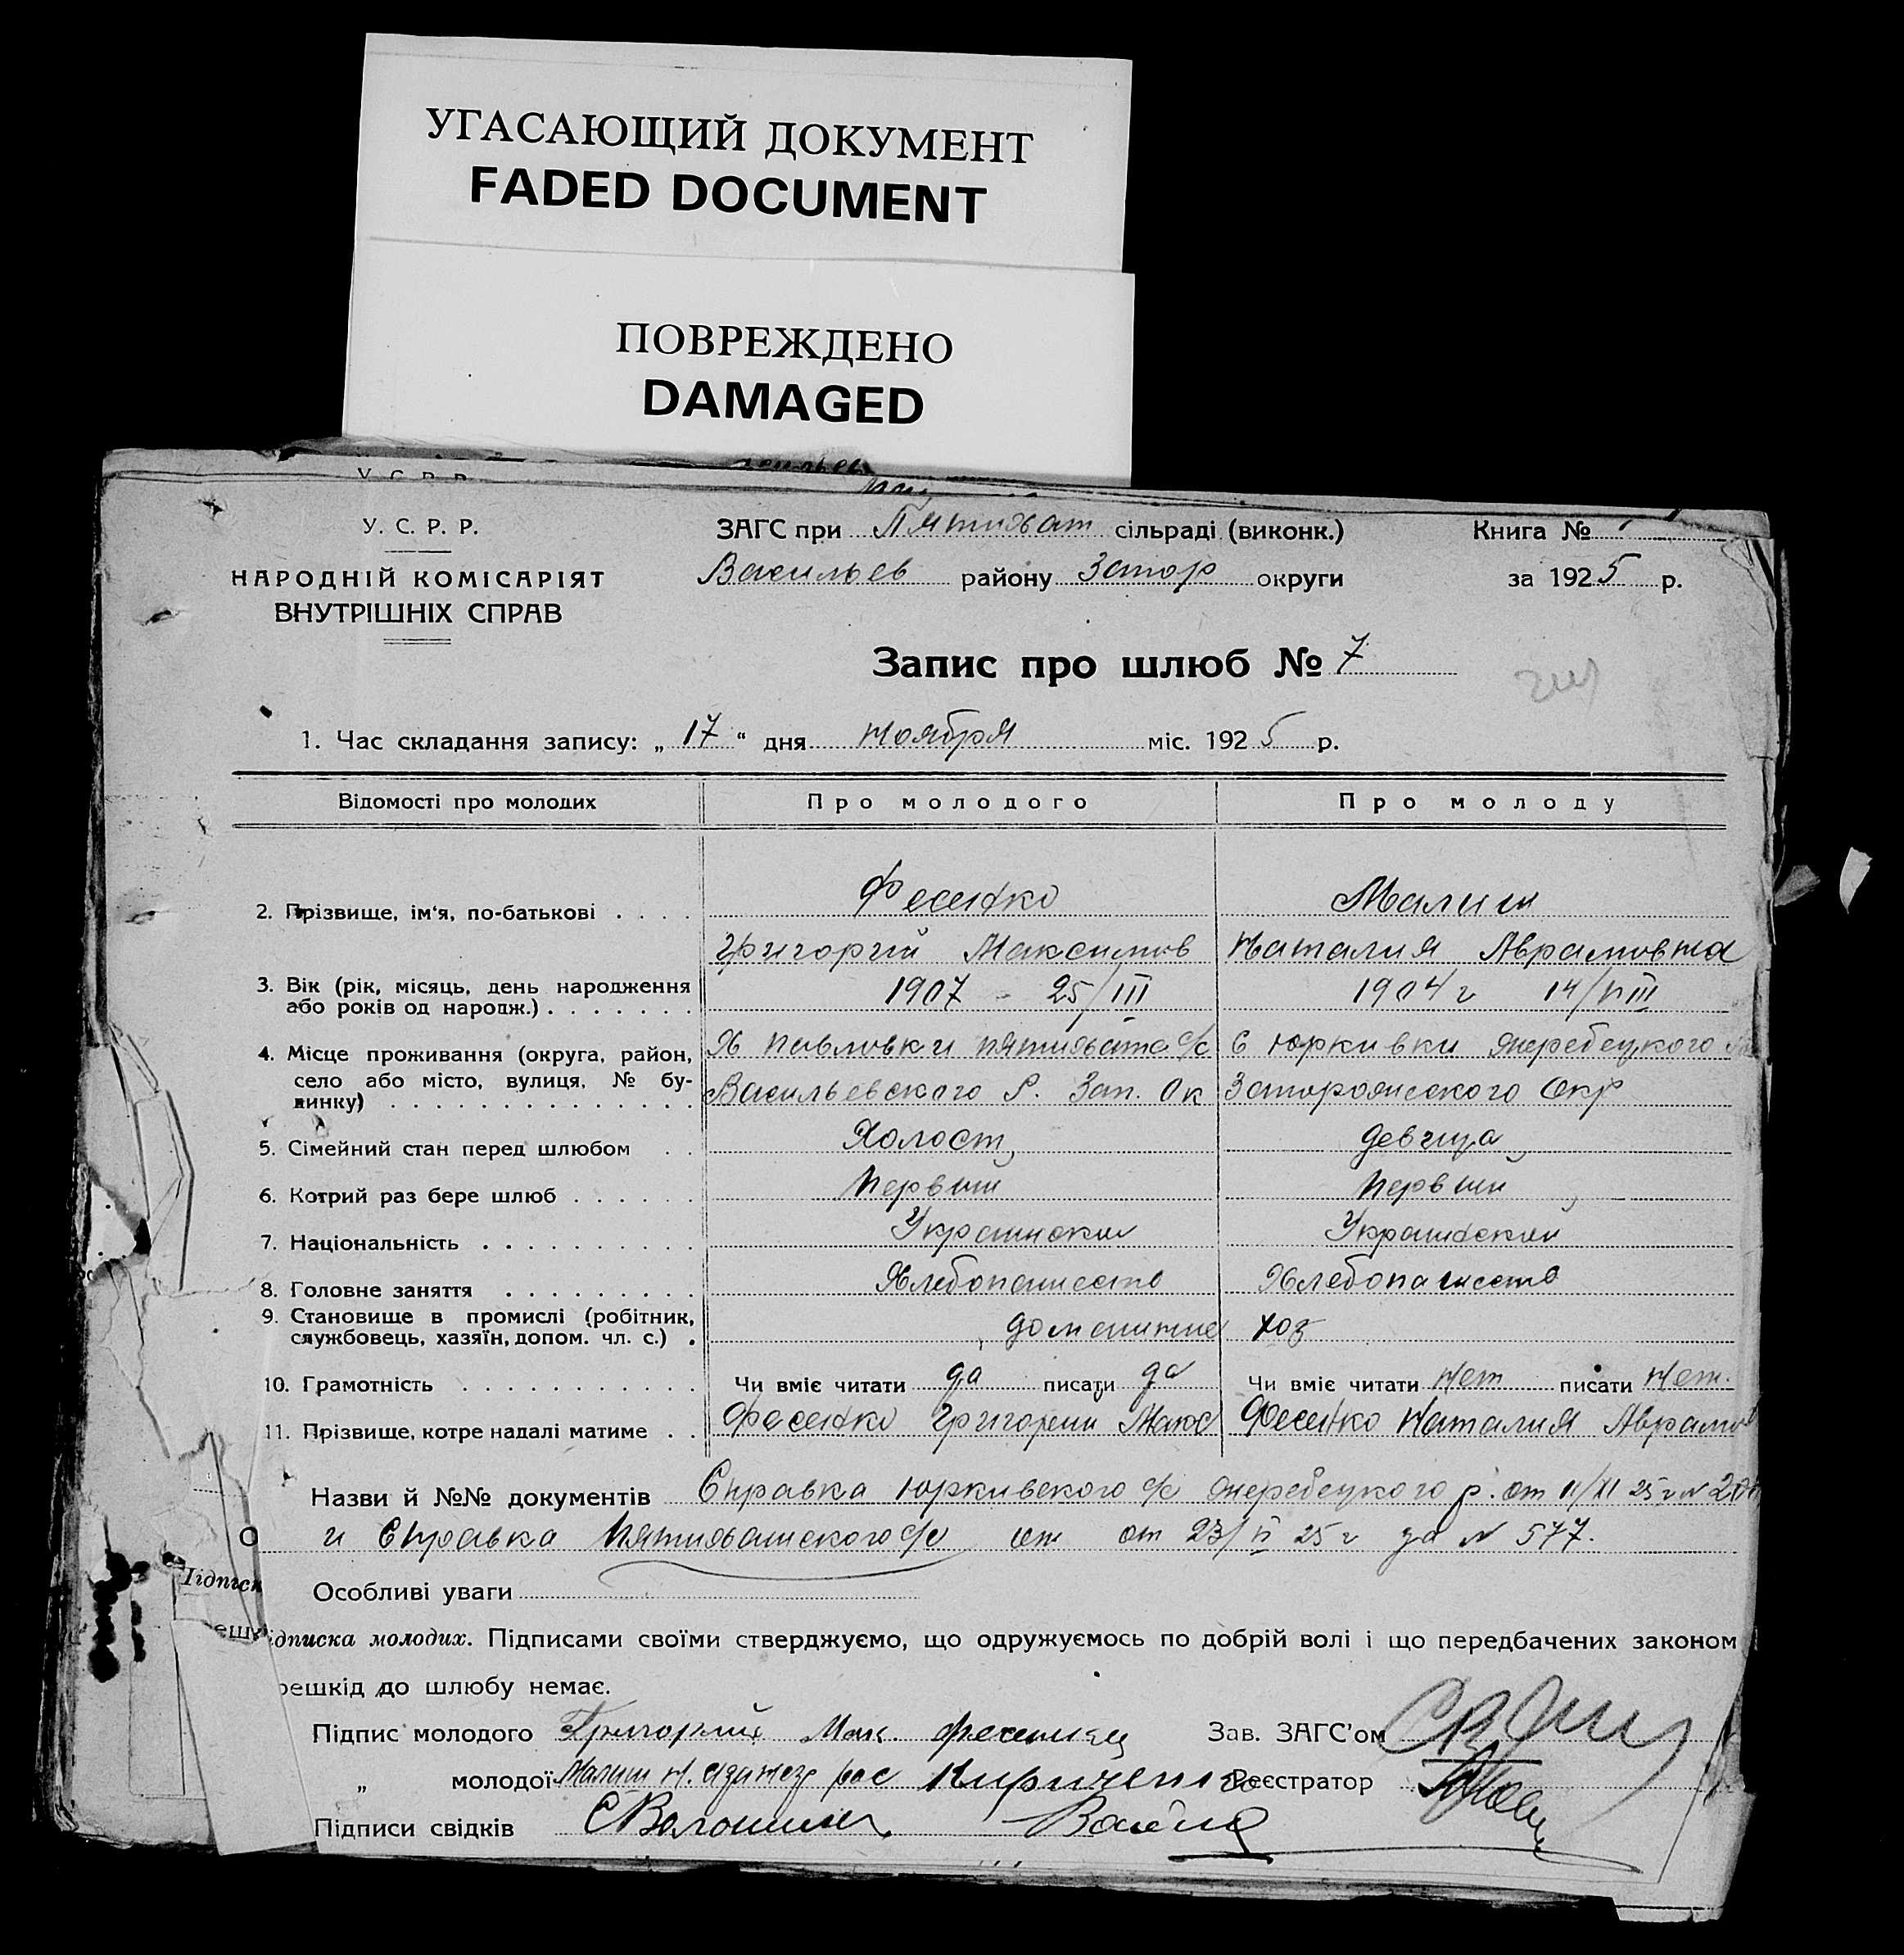 УГАСАЮЩИЙ ДОКУМЕНТ
FADED DOCUMENT
ПОВРЕЖДЕНО
DAMAGED
У. С. Р. Р.
НАРОДНІЙ КОМІСАРІЯТ
ВНУТРІШНІХ СПРАВ
ЗАГС при Пятихат сільраді (виконк.)
Васильев району Запор округи
Книга №
за 1925 р.
Запис про шлюб № 7
1. Час складання запису: „ 17 “ дня ноября міс. 1925 р.
Відомості про молодих Про молодого Про молоду
2. Прізвище, ім'я, по-батькові . . . . Фесенко Малиш
Григорий Максимов Наталия Аврамовна
3. Вік (рік, місяць, день народження
або років од народж.) . . . . . . . 1907 - 25/III 1904 г 14/VIII
4. Місце проживання (округа, район, Х Павловки Пятихатс с/с С Юркивки Жеребецкого
село або місто, вулиця, № бу- Васильевского Р. Зап. Ок Запорожского Окр
динку) . . . . . . . . . . . . . .
5. Сімейний стан перед шлюбом . . Холост девица
6. Котрий раз бере шлюб . . . . . . Первый Первый
7. Національність . . . . . . . . . . Украинский Украинский
8. Головне заняття . . . . . . . . . Хлебопашество Хлебопашество
9. Становище в промислі (робітник,
службовець, хазяїн, допом. чл. с.) . хоз
10. Грамотність . . . . . . . . . . . Чи вміє читати да писати да Чи вміє читати Нет писати Нет.
11. Прізвище, котре надалі матиме . . Фесенко Григорий Макс Фесенко Наталия Аврамов
Назви й №№ документів Справка Юркивского с/с Жеребецкого р. от 11/XI 25 г №
и Справка Пятихатского с/с от 23/VI 25 г за № 577.
Особливі уваги
Підписк
ідписка молодих. Підписами своїми стверджуємо, що одружуємось по добрій волі і що передбачених законом
решкід до шлюбу немає.
Підпис молодого Григорий Мак. Зав. ЗАГС'ом
„ молодої Малиш Н. рас Кириченко Реєстратор
Підписи свідків С Волошин